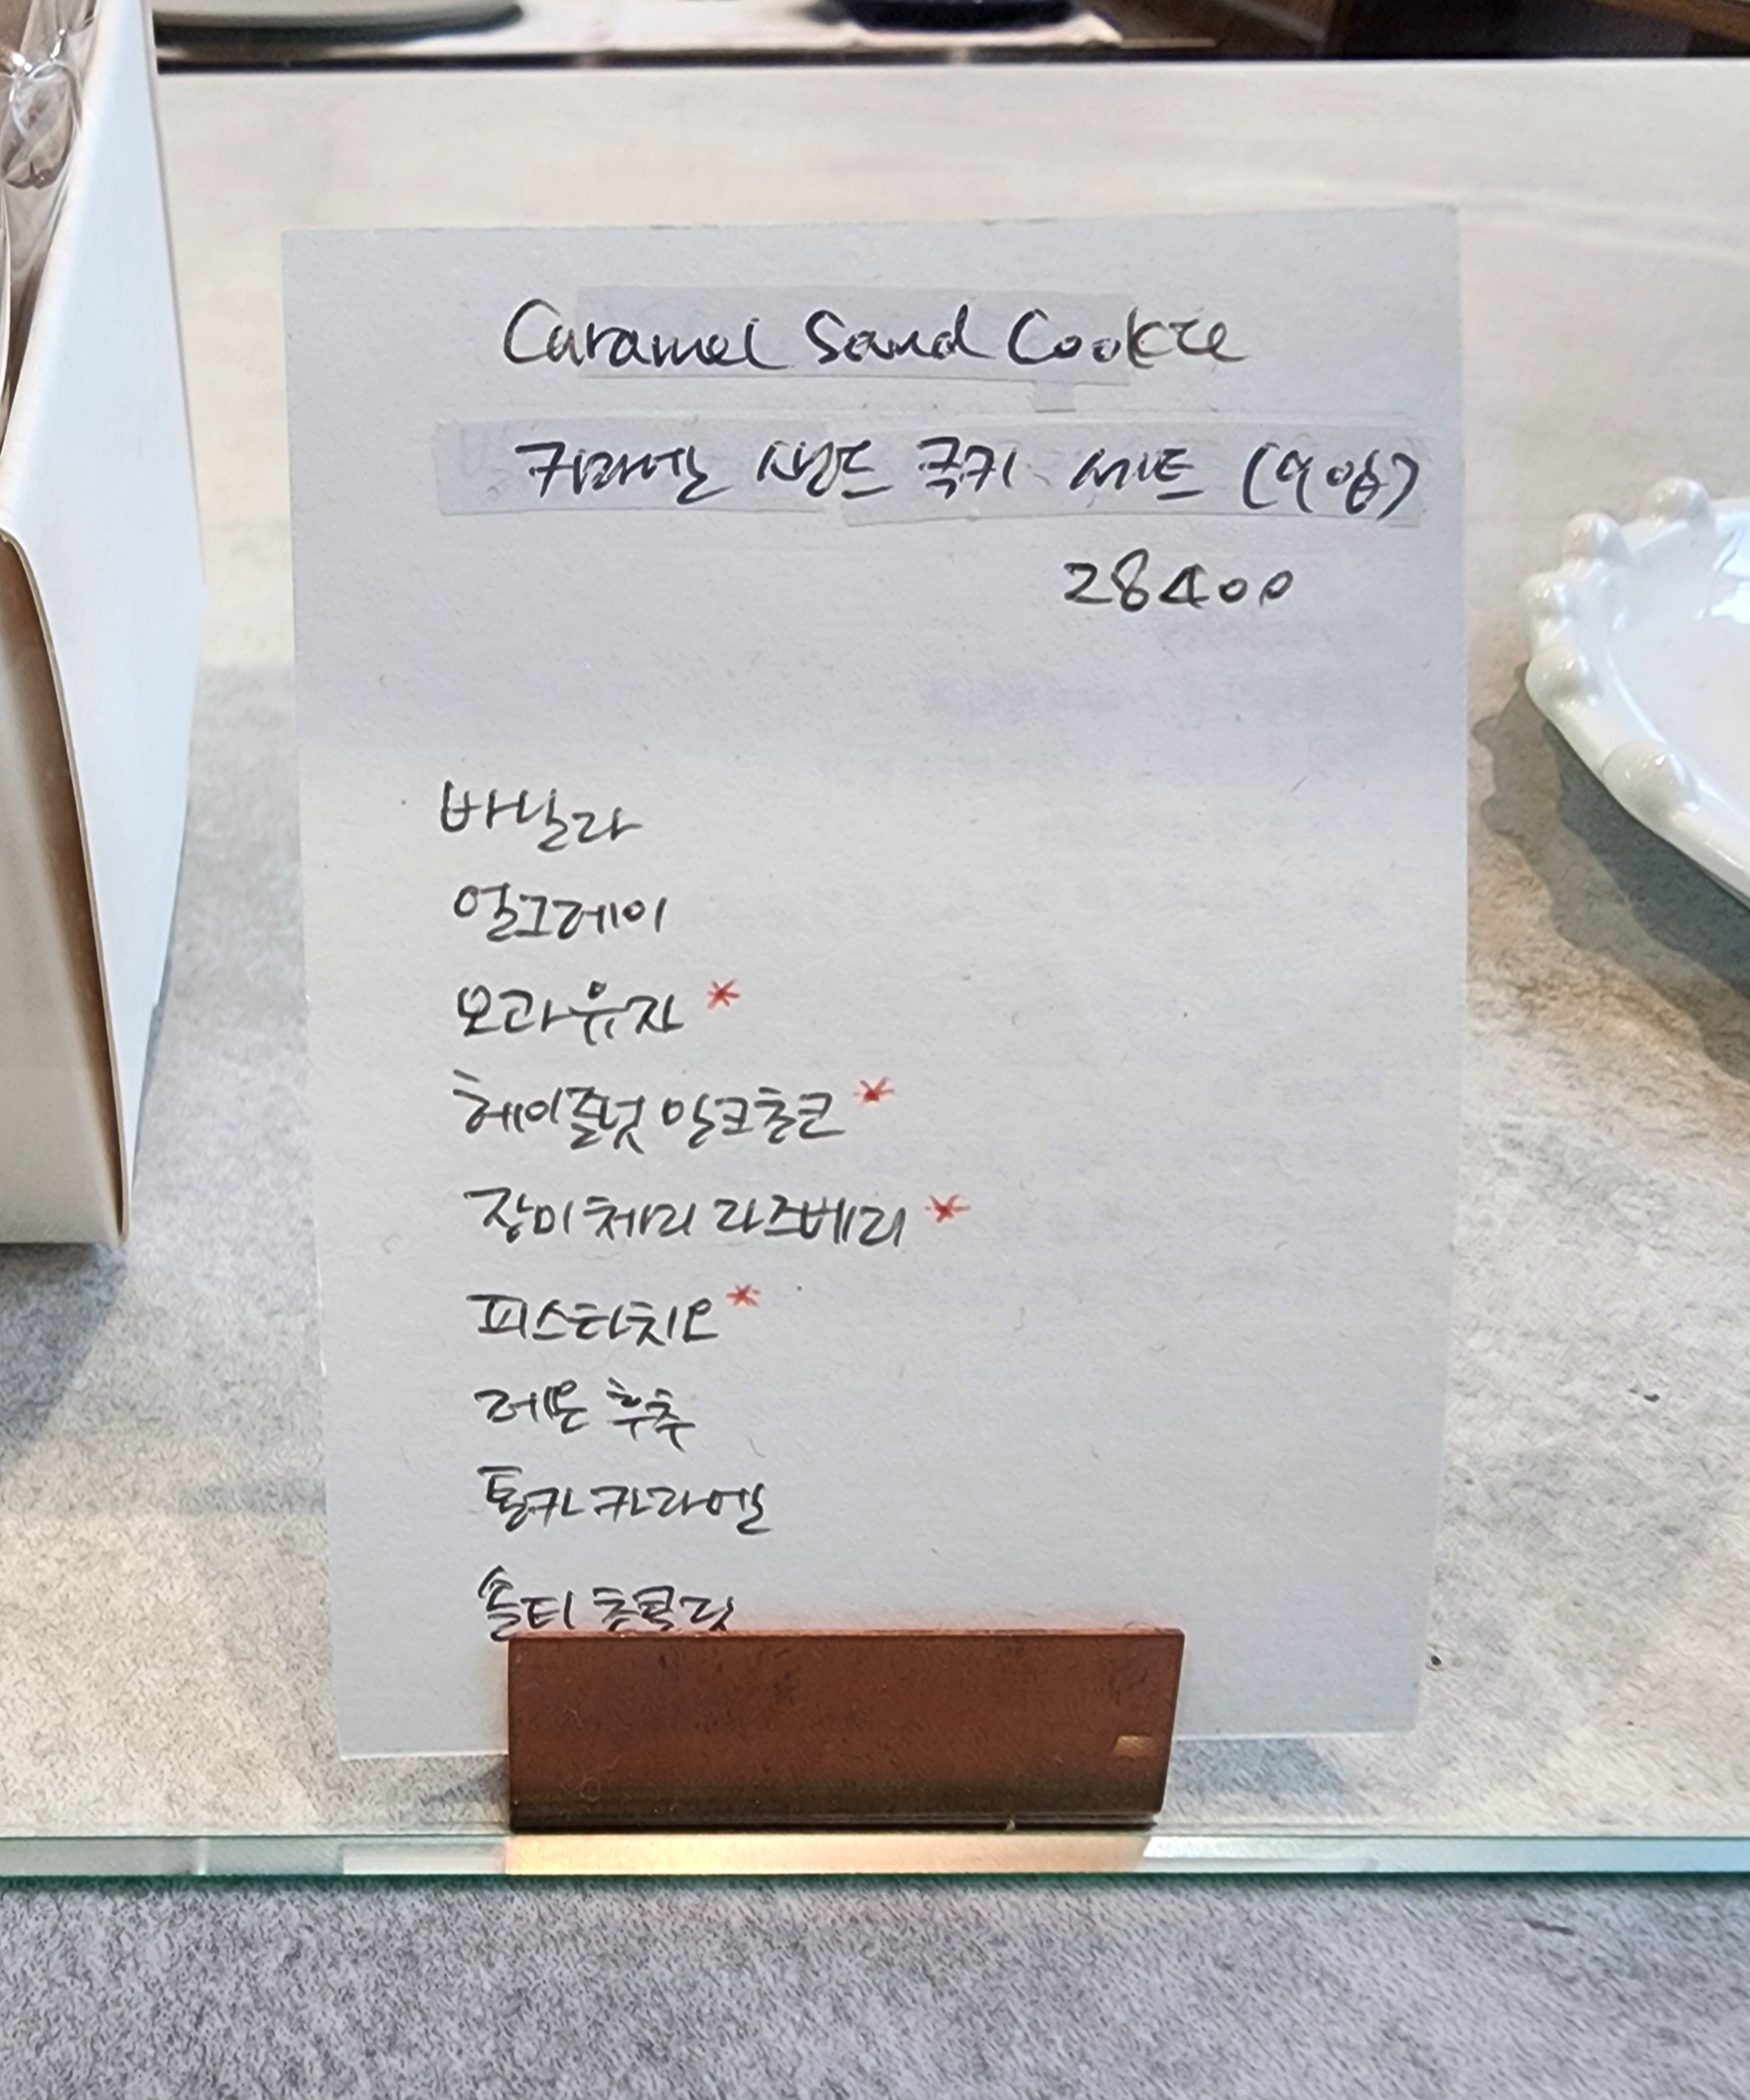 Caramel Sand Cookie
카라멜 샌드 쿠키 세트 (9입)
28400
바닐라
얼그레이
모과유자 *
헤이즐넛 밀크초코 *
장미 체리 라즈베리 *
피스타치오 *
레몬 후추
통카 카라멜
솔티 초콜릿